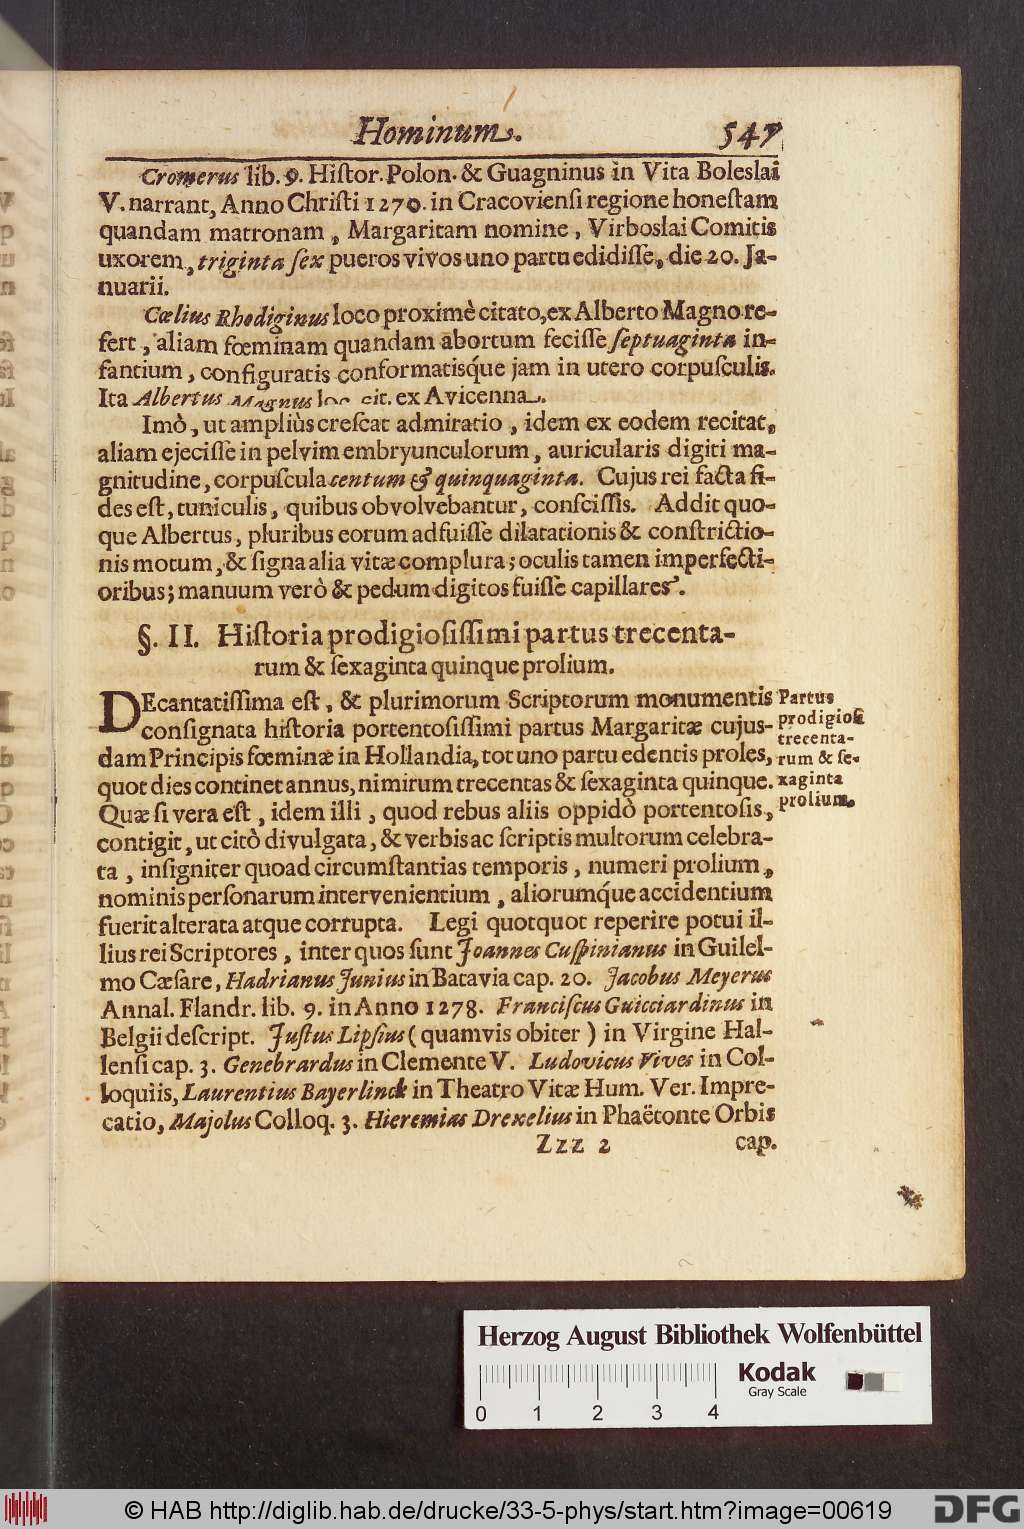 Hominum. 547
Cromerus lib. 9. Histor. Polon. & Guagninus in Vita Boleslai
V. narrant, Anno Christi 1270. in Cracoviensi regione honestam
quandam matronam, Margaritam nomine, Virboslai Comitis
uxorem, triginta sex pueros vivos uno partu edidisse, die 20. Ja-
nuarii.
Cœlius Rhodiginus loco proximè citato, ex Alberto Magno re-
fert, aliam fœminam quandam abortum fecisse septuaginta in-
fantium, configuratis conformatisq́ue jam in utero corpusculis.
Ita Albertus Magnus loc. cit. ex Avicenna.
Imò, ut ampliùs crescat admiratio, idem ex eodem recitat,
aliam ejecisse in pelvim embryunculorum, auricularis digiti ma-
gnitudine, corpuscula centum & quinquaginta. Cujus rei facta fi-
des est, tuniculis, quibus obvolvebantur, conscissis. Addit quo-
que Albertus, pluribus eorum adfuisse dilatationis & constrictio-
nis motum, & signa alia vitæ complura; oculis tamen imperfecti-
oribus; manuum verò & pedum digitos fuisse capillares.
§. II. Historia prodigiosissimi partus trecenta-
rum & sexaginta quinque prolium.
DEcantatissima est, & plurimorum Scriptorum monumentis
consignata historia portentosissimi partus Margaritæ cujus-
dam Principis fœminæ in Hollandia, tot uno partu edentis proles,
quot dies continet annus, nimirum trecentas & sexaginta quinque.
Quæ si vera est, idem illi, quod rebus aliis oppidò portentosis,
contigit, ut citò divulgata, & verbis ac scriptis multorum celebra-
ta, insigniter quoad circumstantias temporis, numeri prolium,
nominis personarum intervenientium, aliorumq́ue accidentium
fuerit alterata atque corrupta. Legi quotquot reperire potui il-
lius rei Scriptores, inter quos sunt Joannes Cuspinianus in Guilel-
mo Cæsare, Hadrianus Junius in Batavia cap. 20. Jacobus Meyerus
Annal. Flandr. lib. 9. in Anno 1278. Franciscus Guicciardinus in
Belgii descript. Justus Lipsius (quamvis obiter) in Virgine Hal-
lensi cap. 3. Genebrardus in Clemente V. Ludovicus Vives in Col-
loquiis, Laurentius Bayerlinck in Theatro Vitæ Hum. Ver. Impre-
catio, Majolus Colloq. 3. Hieremias Drexelius in Phaëtonte Orbis
Zzz 2 cap.
Partus
prodigios9
trecenta-
rum & se-
xaginta
prolium.
Herzog August Bibliothek Wolfenbüttel
Kodak
Gray Scale
0 1 2 3 4
© HAB http://diglib.hab.de/drucke/33-5-phys/start.htm?image=00619
DFG